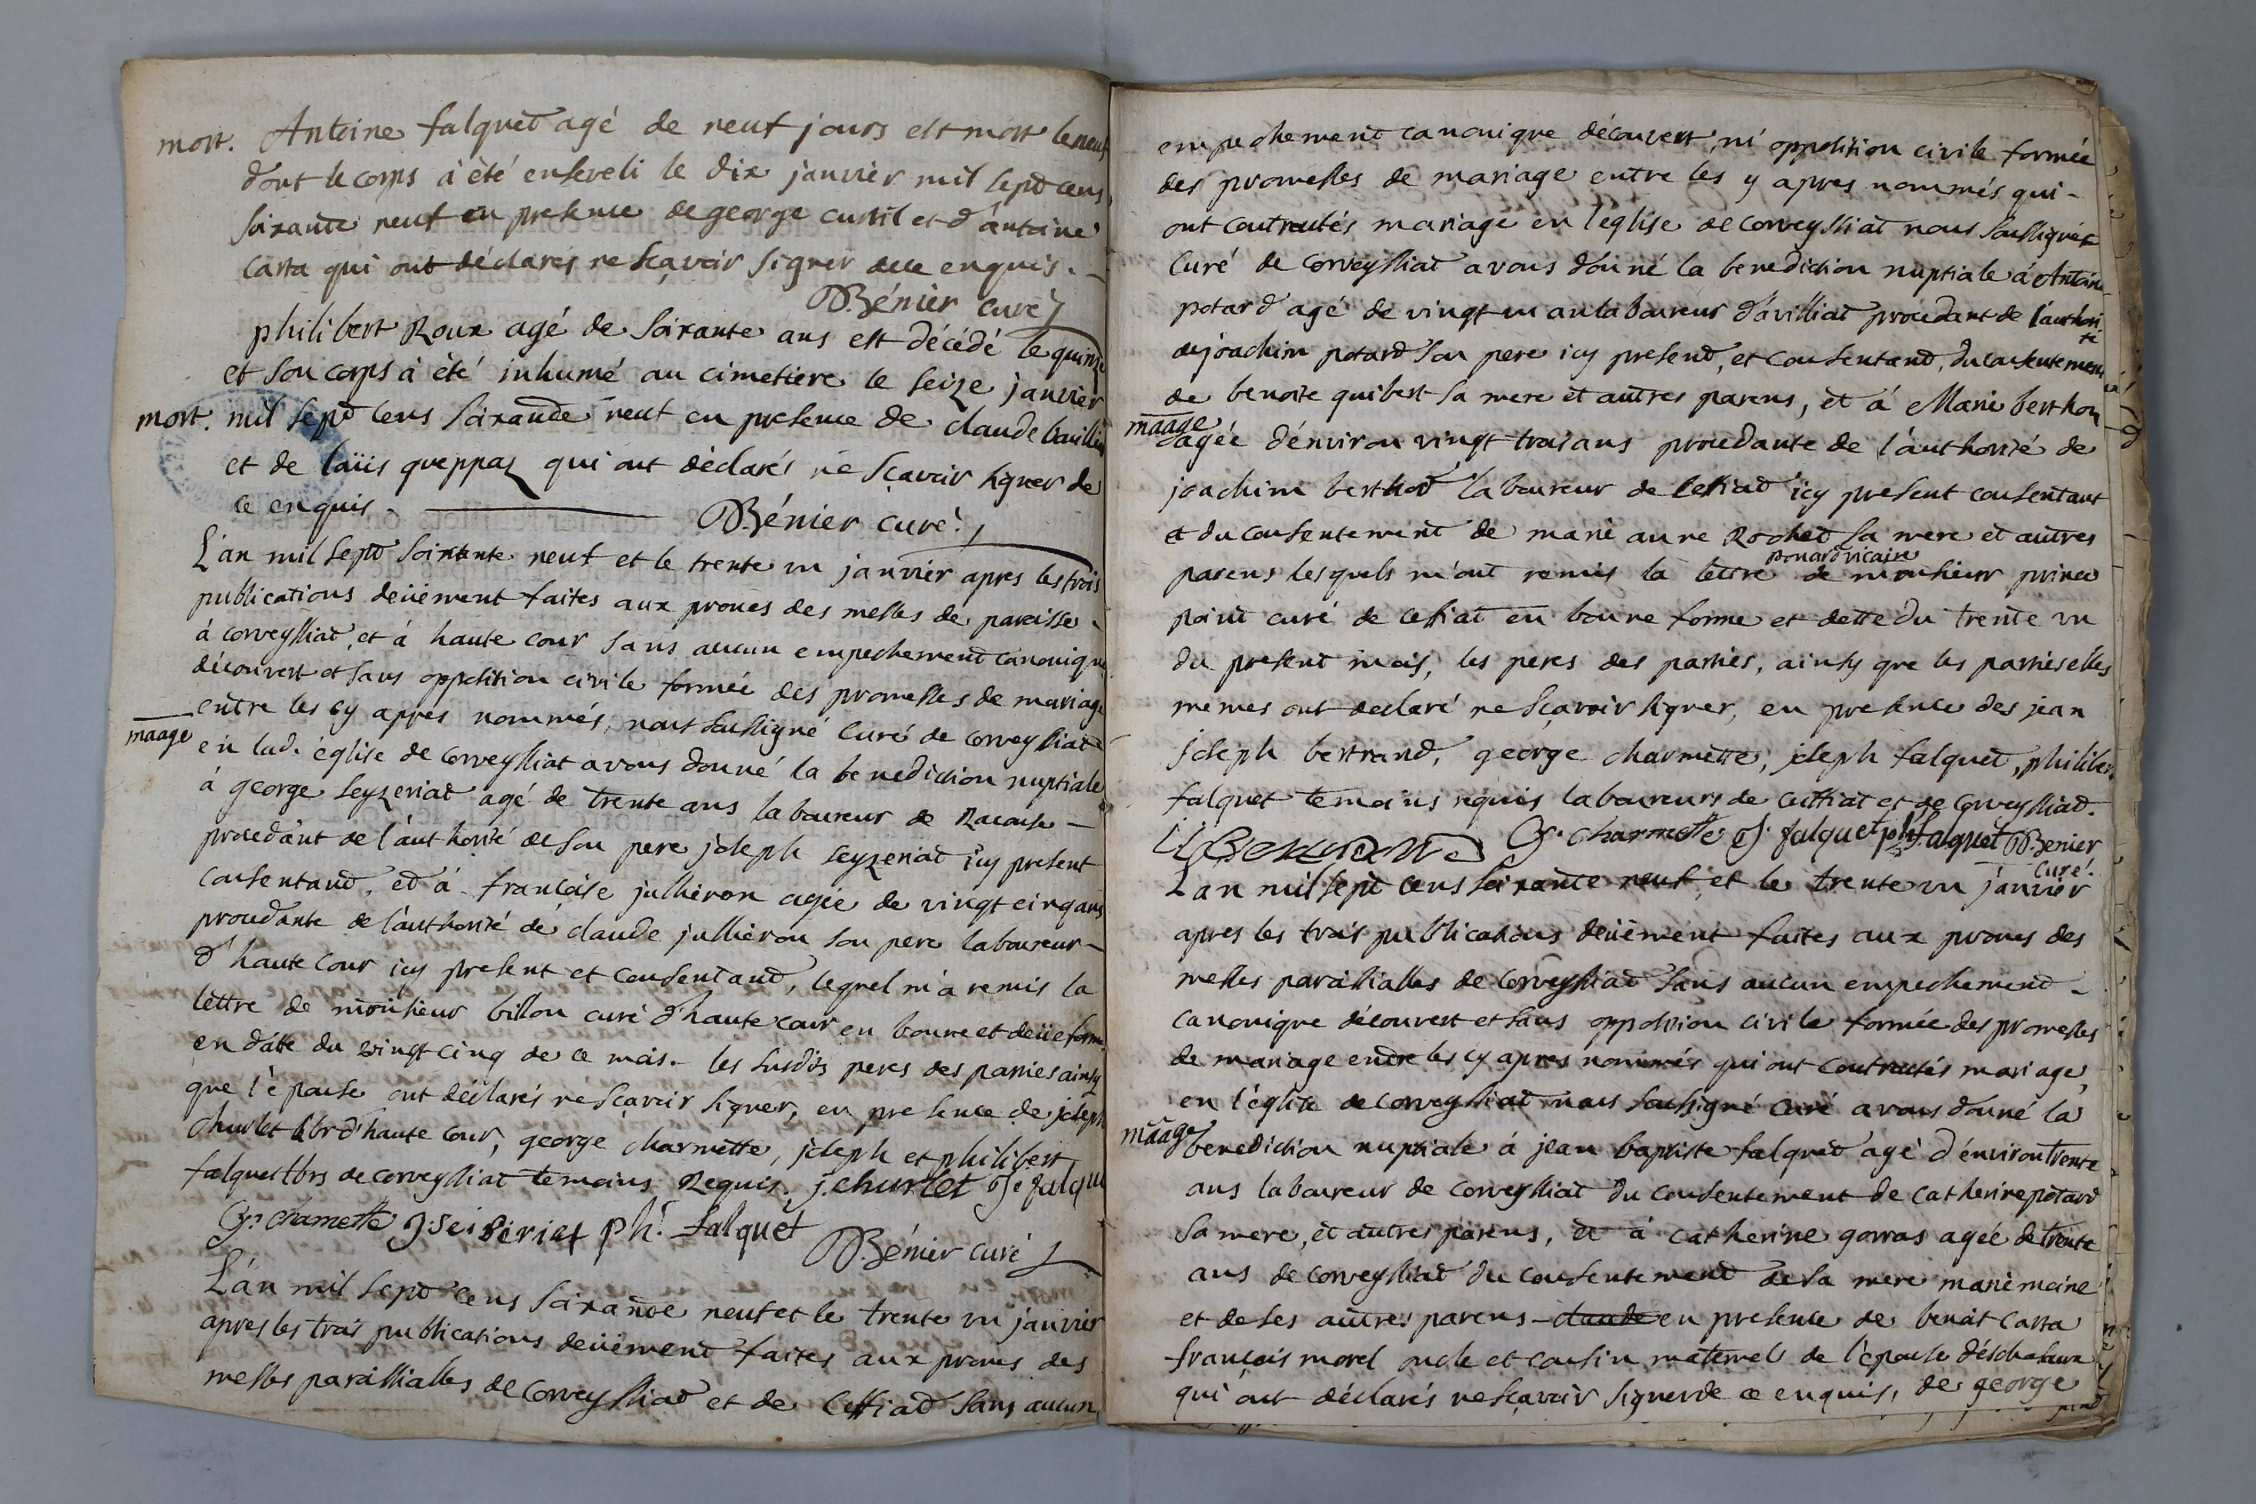 mort. Antoine falquet agé de neuf jours est mort le neuf
dont le corps à èté enseveli le dix janvier mil sept cens
soixante neuf en presence de george curtil et d'antoine
carta qui ont déclarés ne sçavoir signer dece enquis. -
B. Bénier curé
philibert Roux agé de soixante ans est décédé le quinze
et son corps à èté inhumé au cimetiere le seize janvier
mort. mil sept cens soixante neuf en presence de claude
et de loüis greppaz qui ont déclarés ne sçavoir signer de
ce enquis. — B. Bénier curé.
L'an mil sept soixante neuf et le trente un janvier apres les trois
publications deüement faites aux prones des messes de paroisse
à corveyssiat, et à haute cour sans aucun empechement canonique
découvert et sans opposition civile formée des promesses de mariage
entre les cy apres nommés, nous soussigné curé de corveyssiat
maage en lad. église de corveyssiat avons donné la benediction nuptiale
à george seyzeriat agé de trente ans laboureur de Racouse -
procedant de l'authorité de son pere joseph seyzeriat icy present
consentant, et à francoise jullieron agée de vingt cinq ans
procedante de l'authorité de claude jullieron son pere laboureur -
d'haute cour icy present et consentant, lequel m'a remis la
lettre de monsieur billon curé d'haute cour en bonne et deüe forme
en datte du vingt cinq de ce mois. les susdits peres des parties ainsy
que l'épouse ont déclarés ne sçavoir signer, en presence de joseph
churlet lbr d'haute cour, george charmette, joseph et philibert
falquet lbrs de corveyssiat temoins Requis. j. churlet J. falquet
G. charmette J. seiseriat ph. falquet B. Bénier curé
L'an mil sept cens soixante neuf et le trente un janvier
apres les trois publications deüement faites aux prones des
messes paroissialles de corveyssiat et de cessiat sans aucun
empechement canonique découvert, ni opposition civile formée
des promesses de mariage entre les cy apres nommés qui -
ont contractés mariage en l'eglise de corveyssiat nous soussignés
curé de corveyssiat avons donné la benediction nuptiale à Antoine
potard agé de vingt un an laboureur d'avilliat procedant de l'authorité
de joachim potard son pere icy present, et consentant, du consentement
de benoite guibert sa mere et autres parens, et à Marie berthod
maage agée d'environ vingt trois ans procedante de l'authorité de
joachim berthod laboureur de cessiat icy present consentant
et du consentement de marie anne Rochet sa mere et autres
parens lesquels m'ont remis la lettre de monsieur prince
ponard vicaire
point curé de cessiat en bonne forme et dette du trente un
du present mois, les peres des parties, ainsy que les parties elles
mêmes ont declaré ne sçavoir signer, en presence des jean
joseph bertrand, george charmette, joseph falquet, philibert
falquet temoins requis laboureurs de cessiat et de corveyssiat.
G. charmette J. falquet ph. falquet B. Benier
curé.
L'an mil sept cens soixante neuf et le trente un janvier
apres les trois publications deüement faites aux prones des
messes paroissialles de corveyssiat sans aucun empechement -
canonique découvert et sans opposition civile formée des promesses
de mariage entre les cy apres nommés qui ont contractés mariage,
en l'église de corveyssiat nous soussigné curé avons donné la
maage benediction nuptiale à jean baptiste falquet agé d'environ trente
ans laboureur de corveyssiat du consentement de catherine potard
sa mere, et autres parens, et à catherine gorras agée de trente
ans de corveyssiat du consentement de sa mere marie moine
et de ses autres parens - claude en presence de benoit carta
françois morel oncle et cousin maternel de l'épouse
qui ont déclarés ne sçavoir signer de ce enquis, de george